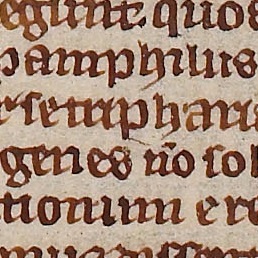 egunt quos
pamphilus
r se tu phari
genes nō sol
tionum ere